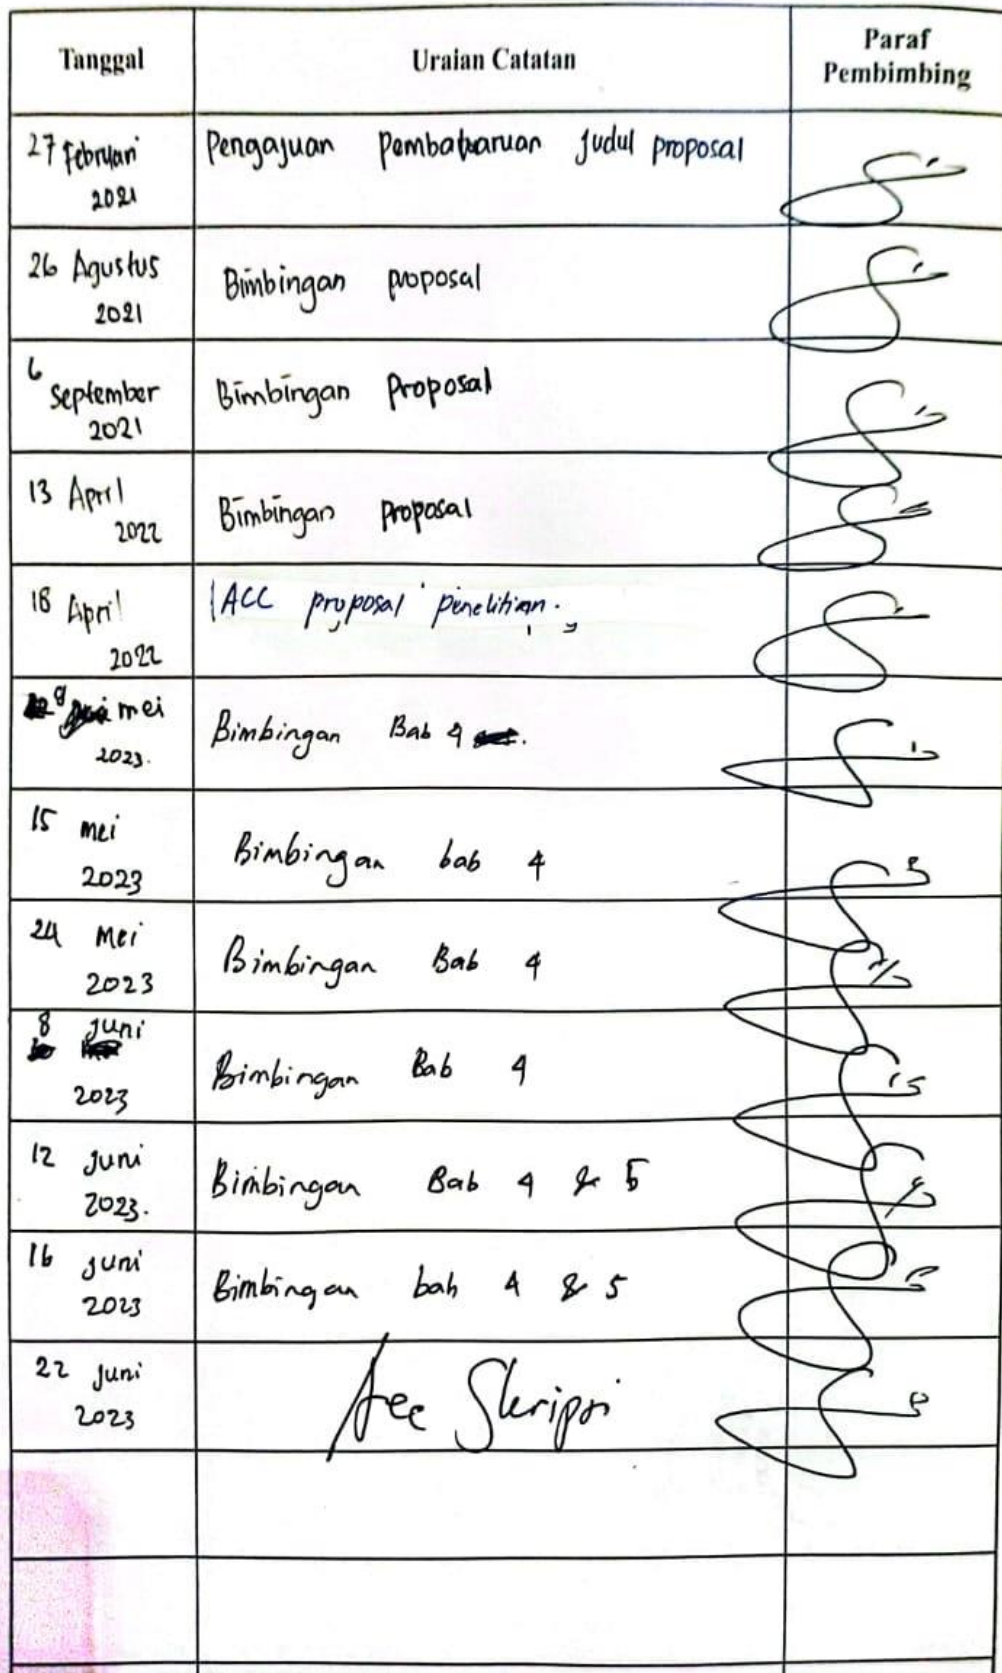 Tanggal
Uraian Catatan
Paraf
Pembimbing
27 Februari
2021
Pengajuan Pembaharuan Judul proposal
26 Agustus
2021
Bimbingan proposal
6
September
2021
Bimbingan Proposal
13 April
2022
Bimbingan Proposal
18 April
2022
ACC proposal penelitian.
8 mei
2023.
Bimbingan Bab 4
15 mei
2023
Bimbingan bab 4
24 Mei
2023
Bimbingan Bab 4
8 Juni
2023
Bimbingan Bab 4
12 Juni
2023.
Bimbingan Bab 4 & 5
16 Juni
2023
Bimbingan bab 4 & 5
22 Juni
2023
Acc Skripsi